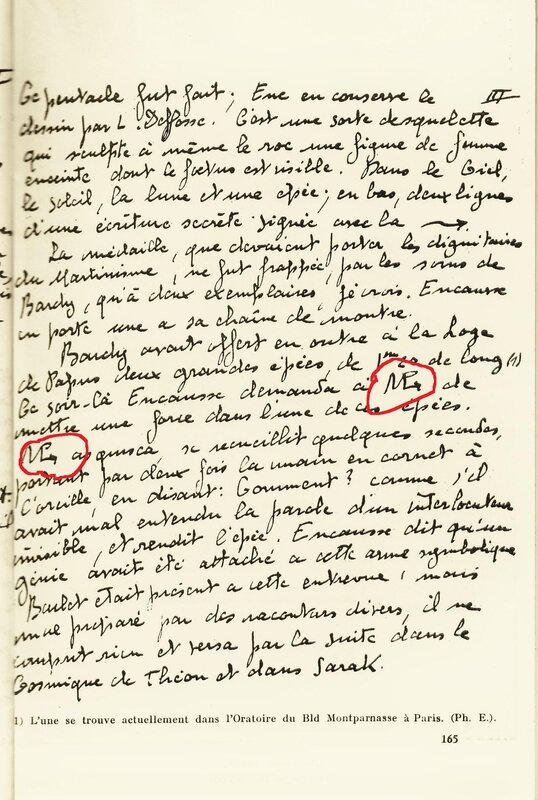 Ce pentacle fut fait ; Enc en conserve le III
dessin par L. Deffosse. C'est une sorte desquelette
qui sculpte à même le roc une figure de femme
enceinte dont le fœtus est visible. Dans le Ciel,
le soleil, la lune et une épée ; en bas, deux lignes
d'une écriture secrète signée avec la →.
La médaille, que devaient porter les dignitaires
du Martinisme, ne fut frappée, par les soins de
Bardy, qu'à deux exemplaires, je crois. Encausse
en porte une a sa chaîne de montre.
Bardy avait offert en outre à la Loge
de Papus deux grandes épées, de de long (1)
Ce soir-là Encausse demanda à de
mettre une force dans l'une de ces épées.
se recueillit quelques secondes,
portant par deux fois la main en cornet à
l'oreille, en disant : Comment ? comme s'il
avait mal entendu la parole d'un interlocuteur
invisible, et rendit l'épée. Encausse dit qu'un
génie avait été attaché a cette arme symbolique
Barlet était présent a cette entrevue ; mais
mal préparé par des racontars divers, il ne
comprit rien et versa par la suite dans le
Cosmique de Théon et dans Sarak.
1) L'une se trouve actuellement dans l'Oratoire du Bld Montparnasse à Paris. (Ph. E.).
165